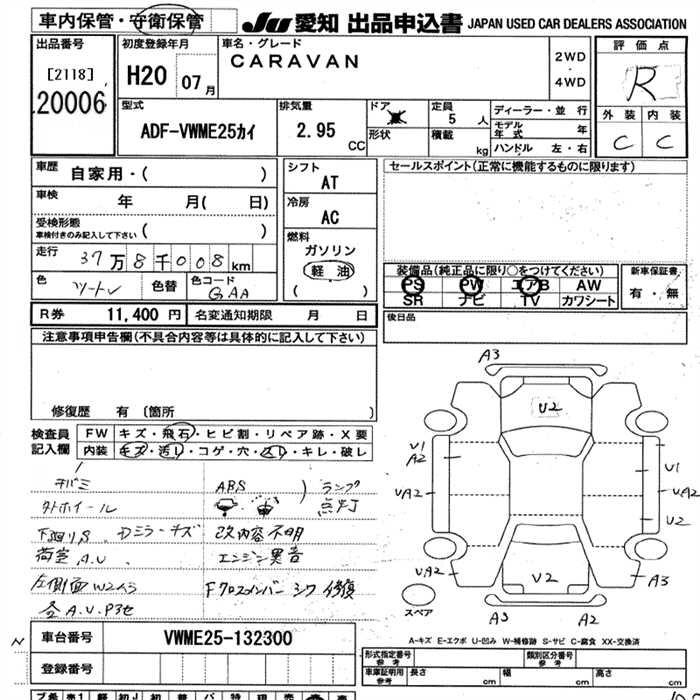 車内保管・守衛保管
JU 愛知 出品申込書 JAPAN USED CAR DEALERS ASSOCIATION
出品番号
[2118]
20006
初度登録年月
H20 07月
車名・グレード
CARAVAN
2WD
・
4WD
評価点
R
外装 内装
C C
型式
ADF-VWME25カイ
排気量
2.95 CC
ドア
形状
定員
5 人
積載
kg
ディーラー・並行
モデル年式 年
ハンドル 左・右
車歴
自家用・( )
車検
年 月( 日)
受検形態
車検付きのみ記入して下さい ( )
走行
37万8千008km
色
色替
色コード
GAA
シフト
AT
冷房
AC
燃料
ガソリン
軽油
( )
セールスポイント(正常に機能するものに限ります)
装備品(純正品に限り○をつけてください)
PS PW エアB AW
SR ナビ TV カワシート
新車保証書
有・無
R券 11,400 円 名変通知期限 月 日
後日品
注意事項申告欄(不具合内容等は具体的に記入して下さい)
修復歴 有 〔箇所 〕
検査員記入欄
FW キズ・飛石・ヒビ割・リペア跡・X要
内装 キズ・汚レ・コゲ・穴・スレ・キレ・破レ
ABS ランプ点灯
外ホイール
下廻りS Dミラーキズ 改内容不明
荷室A.U エンジン異音
左側面W2入ろ Fクロスメンバー シワ 修復
各A.U P3セ
車台番号 VWME25-132300
登録番号
A3
U2
U1
A2
UA2
U1
UA2
U2
UA2
A3
U2
A3
A2
スペア
A-キズ E-エクボ U-凹み W-補修跡 S-サビ C-腐食 XX-交換済
形式指定番号 参考
類別区分番号 参考
車庫証明用 参考 長さ cm 幅 cm 高さ cm